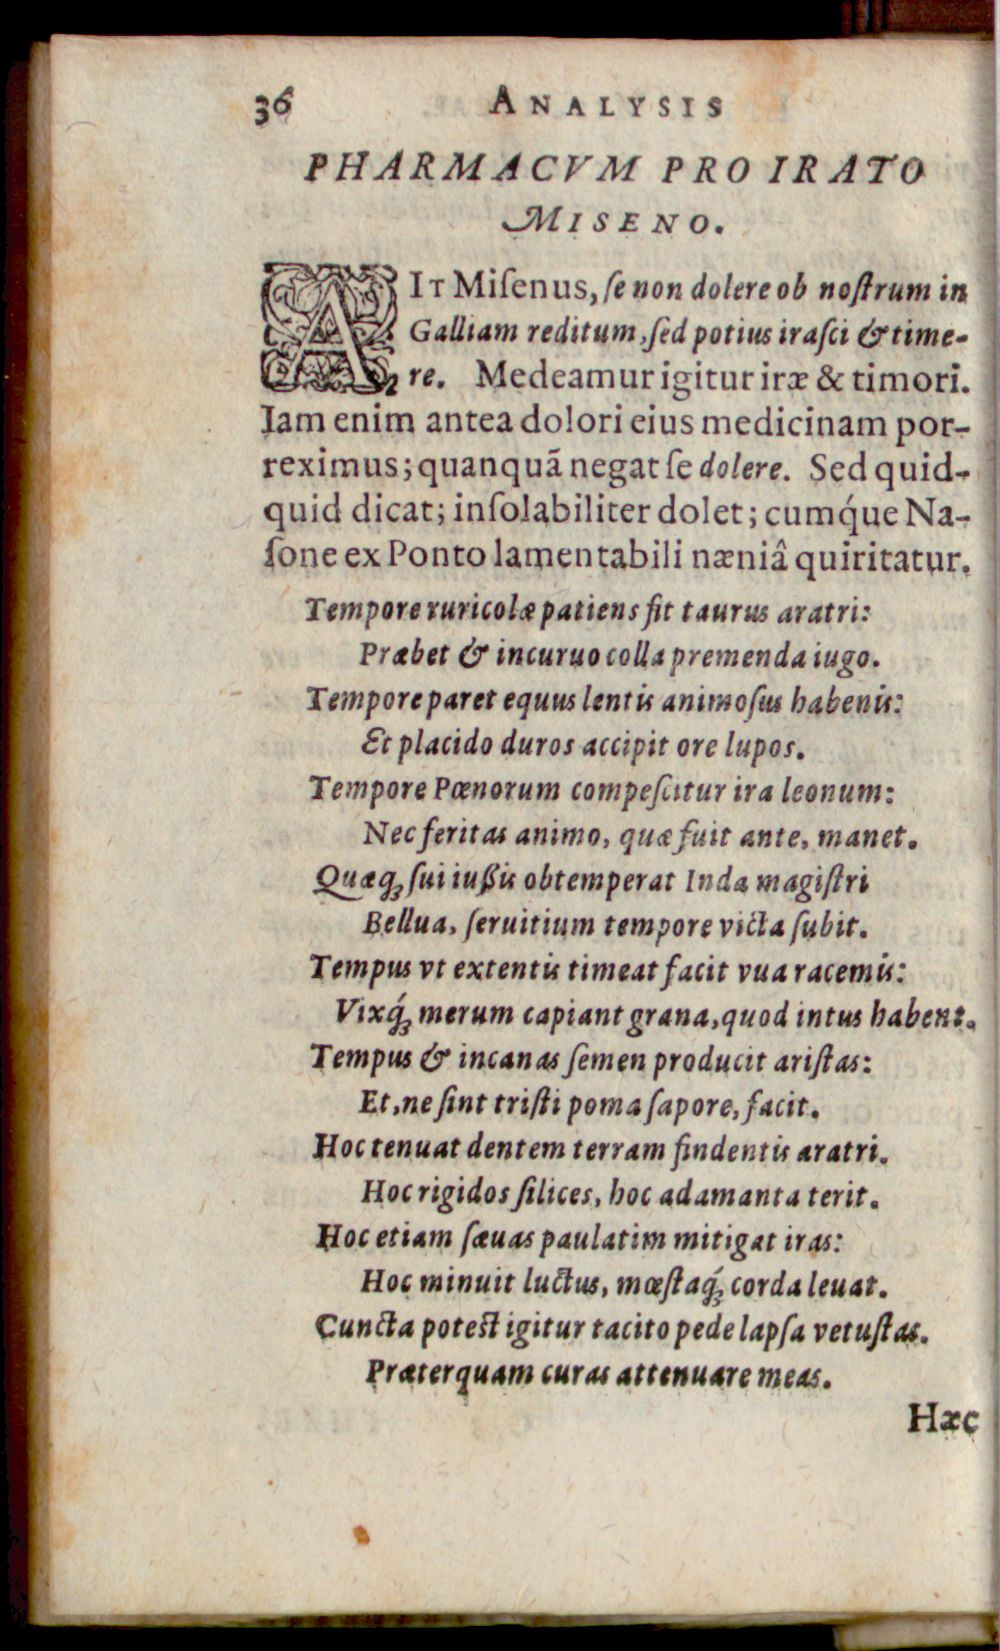 36 ANALYSIS
PHARMACVM PRO IRATO
MISENO.
AIT Miſenus, ſe non dolere ob noſtrum in
Galliam reditum, ſed potius iraſci & time-
re. Medeamur igitur iræ & timori.
Iam enim antea dolori eius medicinam por-
reximus; quanquã negat ſe dolere. Sed quid-
quid dicat; inſolabiliter dolet; cumq́ue Na-
ſone ex Ponto lamentabili næniâ quiritatur.
Tempore ruricolæ patiens fit taurus aratri:
Præbet & incuruo colla premenda iugo.
Tempore paret equus lentis animoſus habenis:
Et placido duros accipit ore lupos.
Tempore Pœnorum compeſcitur ira leonum:
Nec feritas animo, quæ fuit ante, manet.
Quæq; ſui iuſſis obtemperat Inda magiſtri
Bellua, ſeruitium tempore victa ſubit.
Tempus vt extentis timeat facit vua racemis:
Vixq́; merum capiant grana, quod intus habent.
Tempus & incanas ſemen producit ariſtas:
Et, ne ſint triſti poma ſapore, facit.
Hoc tenuat dentem terram findentis aratri.
Hoc rigidos ſilices, hoc adamanta terit.
Hoc etiam ſæuas paulatim mitigat iras:
Hoc minuit luctus, mœſtaq́; corda leuat.
Cuncta poteſt igitur tacito pede lapſa vetuſtas.
Præterquam curas attenuare meas.
Hæc